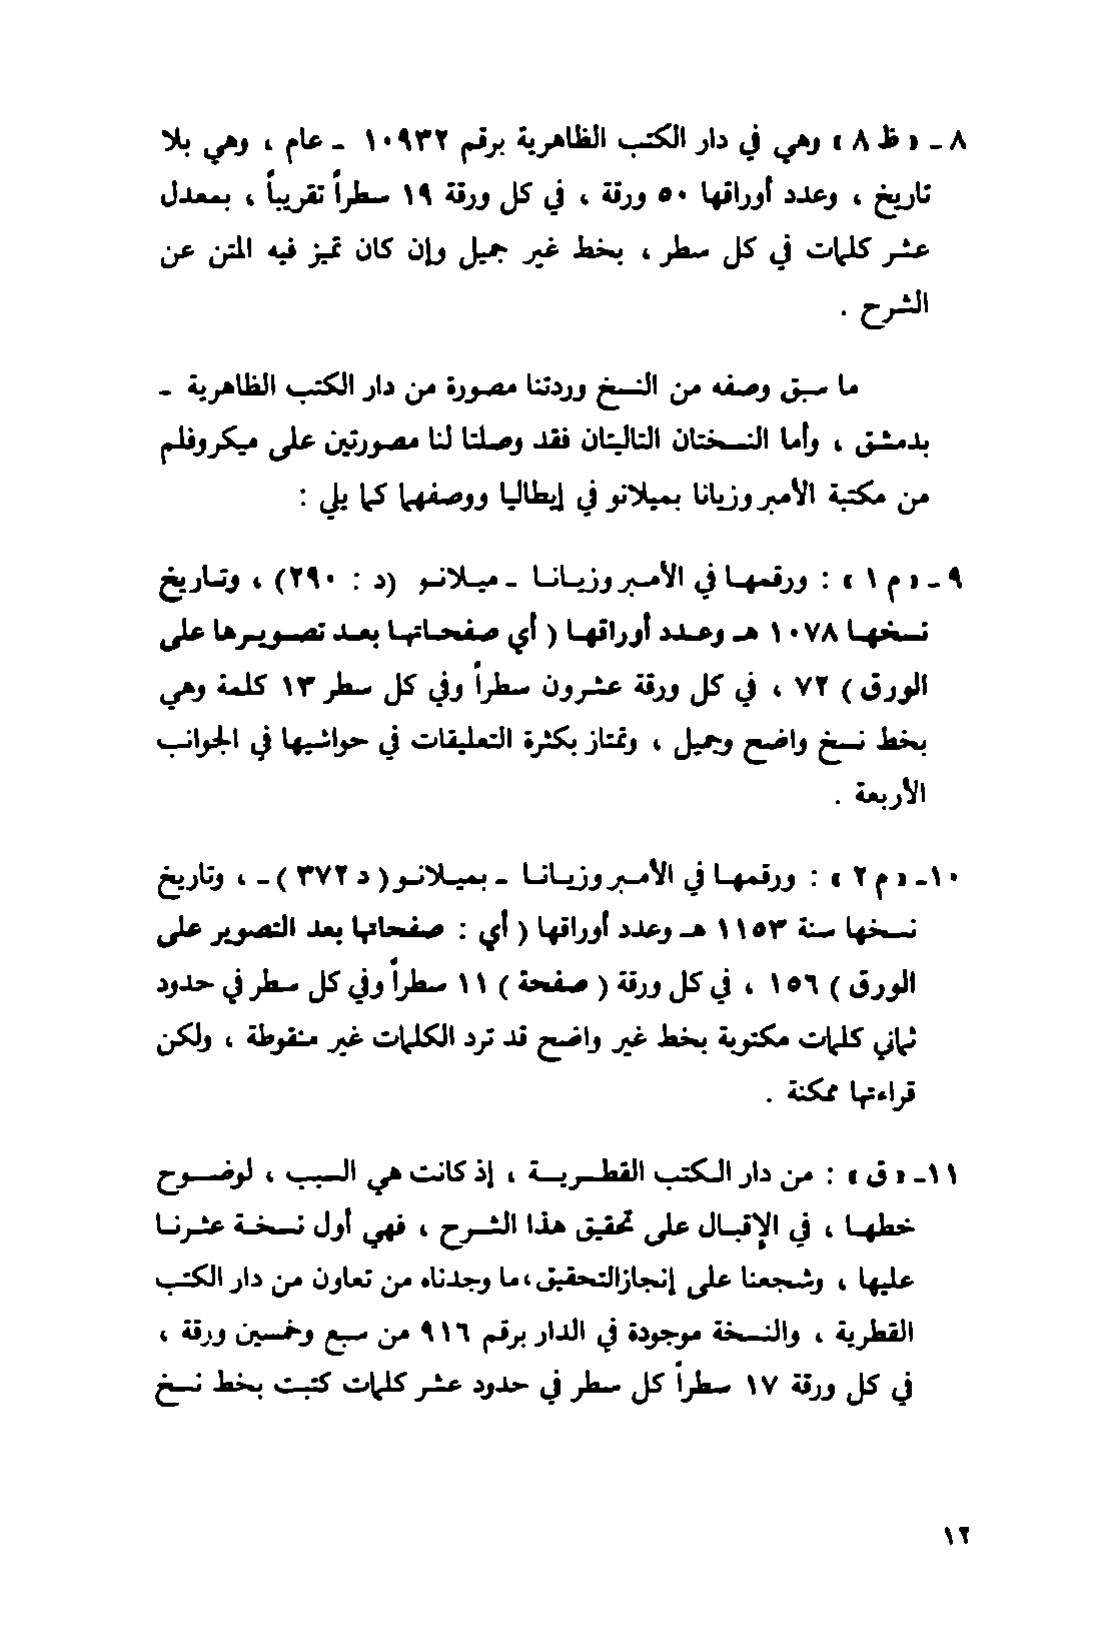 ٨ ـ « ظ ٨ » وهي في دار الكتب الظاهرية برقم ١٠٩٣٢ ـ عام ، وهي بلا
تاريخ ، وعدد أوراقها ٥٠ ورقة ، في كل ورقة ١٩ سطراً تقريباً ، بمعدل
عشر كلمات في كل سطر ، بخط غير جميل وإن كان تميز فيه المتن عن
الشرح .
ما سبق وصفه من النسخ وردتنا مصورة من دار الكتب الظاهرية ـ
بدمشق ، وأما النسختان التاليتان فقد وصلتا لنا مصورتين على ميكروفلم
من مكتبة الأمبروزيانا بميلانو في إيطاليا ووصفهما كما يلي :
٩ ـ « م ١ » : ورقمها في الأمبروزيانا ـ ميلانو (د : ٢٩٠) ، وتاريخ
نسخها ١٠٧٨ هـ وعدد أوراقها ( أي صفحاتها بعد تصويرها على
الورق ) ٧٢ ، في كل ورقة عشرون سطراً وفي كل سطر ١٣ كلمة وهي
بخط نسخ واضح وجميل ، وتمتاز بكثرة التعليقات في حواشيها في الجوانب
الأربعة .
١٠ـ « م ٢ » : ورقمها في الأمبروزيانا ـ بميلانو ( د ٣٧٢ ) ـ ، وتاريخ
نسخها سنة ١١٥٣ هـ وعدد أوراقها ( أي : صفحاتها بعد التصوير على
الورق ) ١٥٦ ، في كل ورقة ( صفحة ) ١١ سطراً وفي كل سطر في حدود
ثماني كلمات مكتوبة بخط غير واضح قد ترد الكلمات غير منقوطة ، ولكن
قراءتها ممكنة .
١١ـ « ق » : من دار الكتب القطرية ، إذ كانت هي السبب ، لوضوح
خطها ، في الإقبال على تحقيق هذا الشرح ، فهي أول نسخة عثرنا
عليها ، وشجعنا على إنجازالتحقيق، ما وجدناه من تعاون من دار الكتب
القطرية ، والنسخة موجودة في الدار برقم ٩١٦ من سبع وخمسين ورقة ،
في كل ورقة ١٧ سطراً كل سطر في حدود عشر كلمات كتبت بخط نسخ
١٢